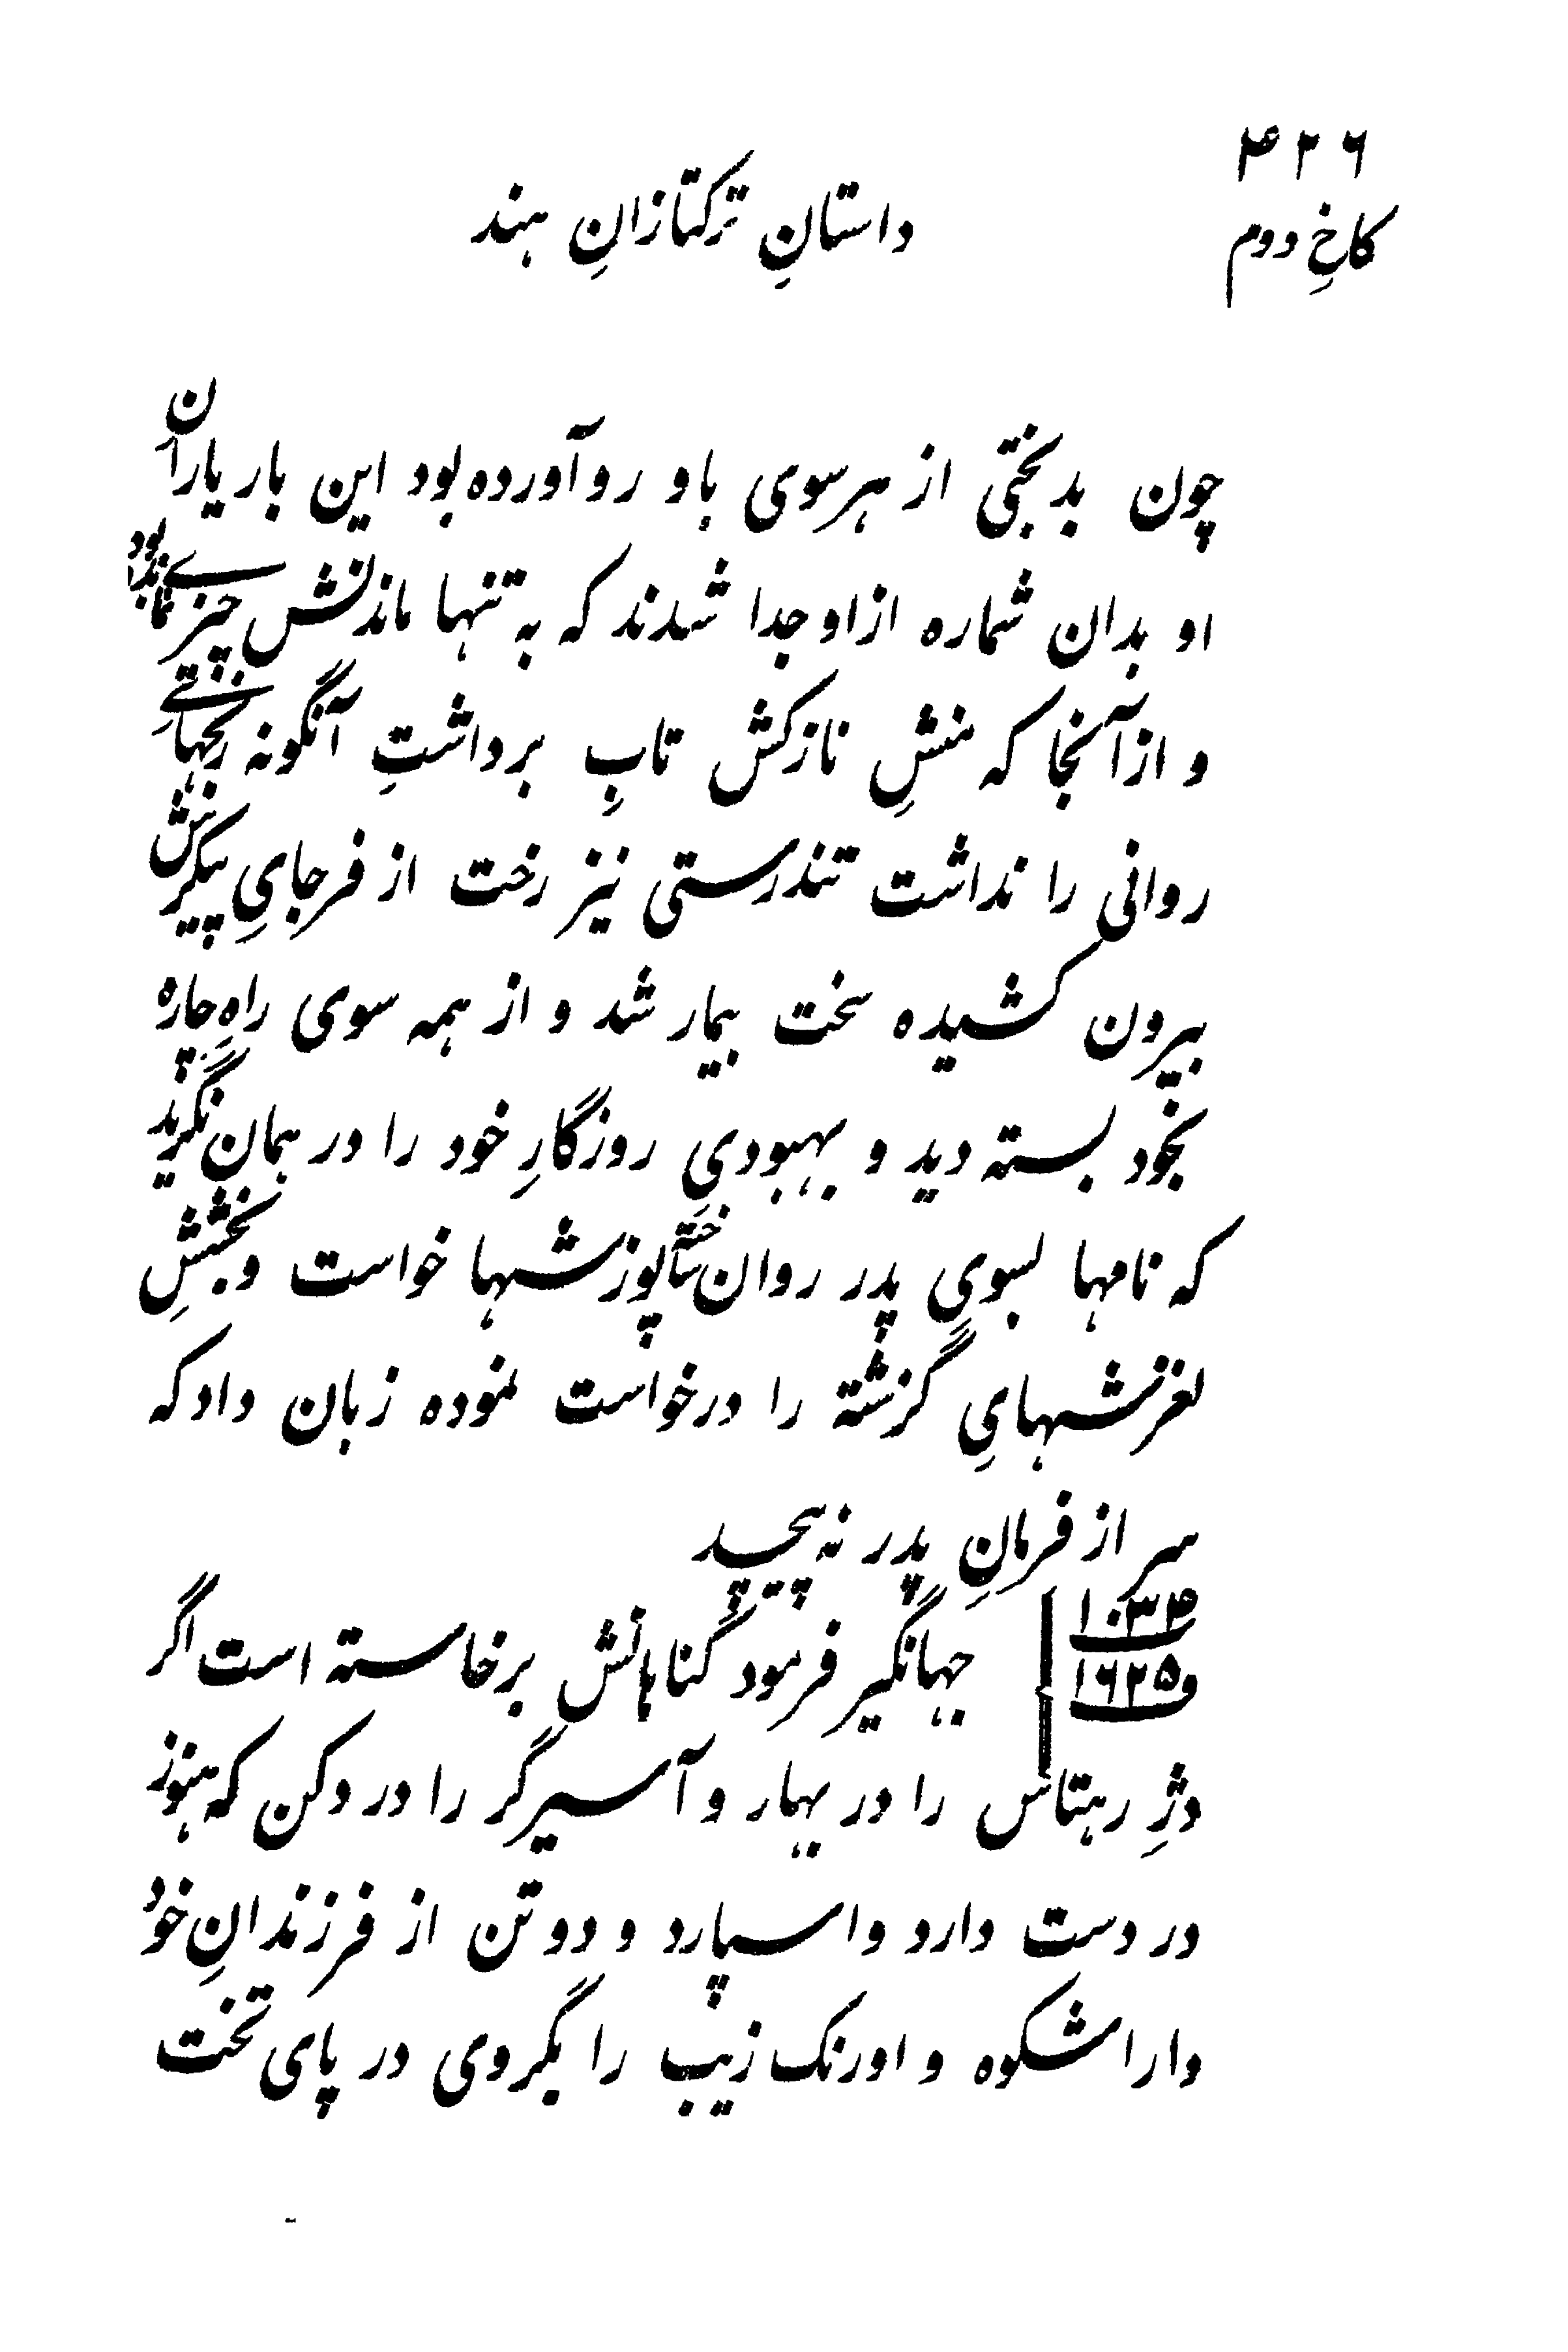 ۴۲۶
کاخِ دوم
داستانِ ترکتازانِ هند
چون بدبختی از هر سوی باو رو آورده بود این بار یاران
او بدان شماره ازو جدا شدند که به تنها ماندنش چیزے نمانده بود
و ازآنجا که منشِ نازکش تابِ برداشتِ آنگونه رنجهاے
روانی را نداشت تندرستی نیز رخت از فرجایِ پیکرش
بیرون کشیده سخت بیمار شد و از همه سوی راهِ چاره
بخود بسته دید و بهبودیِ روزگارِ خود را در همان نگرید
که نامها بسوی پدر روان ساخته پوزشها خواست و بخششِ
لغزشهایِ گزشته را درخواست نموده زبان داد که
سر از فرمانِ پدر نه پیچید
۱۰۳۴
۱۶۲۵
جهانگیر فرمود گناهانش برخاسته است اگر
دژِ رهتاس را در بهار و آسیرگر را در دکن که هنوز
در دست دارد واسپارد و دو تن از فرزندانِ خود
داراشکوه و اورنک زیب را بگروی در پای تخت